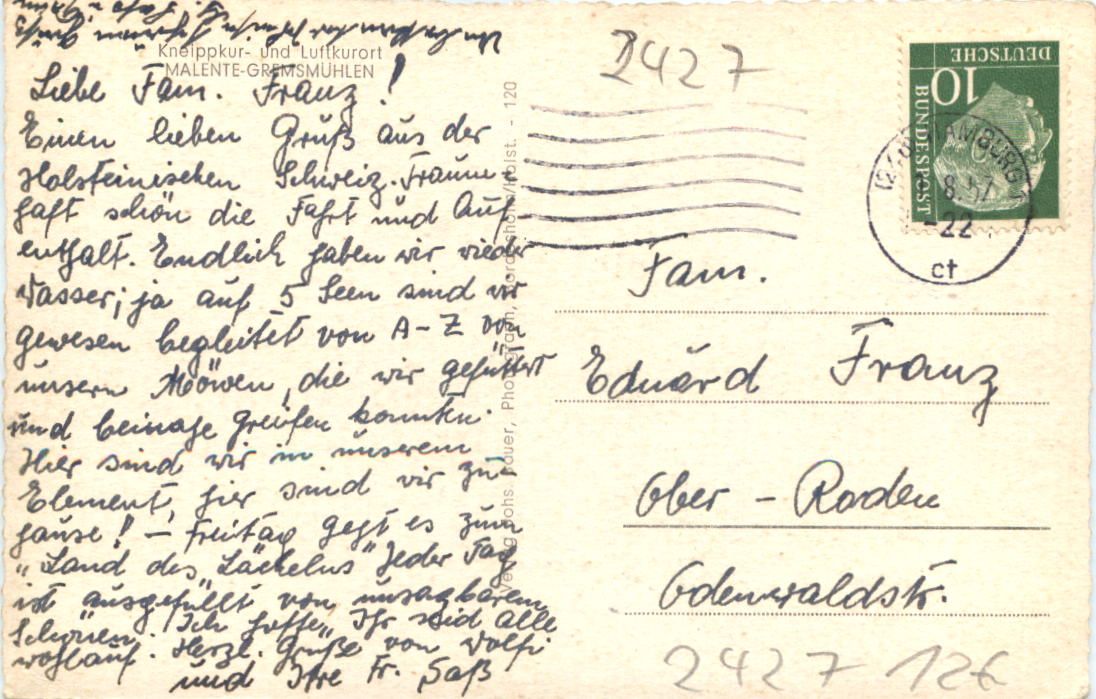 Kneippkur- und Luftkurort
MALENTE-GREMSMÜHLEN
Liebe Fam. Franz!
Einen lieben Gruß aus der
Holsteinischen Schweiz. Traum-
haft schön die Fahrt und Auf-
enthalt. Endlich haben wir wieder
Wasser; ja auf 5 Seen sind wir
gewesen begleitet von A-Z von
unsern Möwen, die wir gefüttert
und beinahe greifen konnten.
Hier sind wir in unserem
Element, hier sind wir zu-
hause! – Freitag geht es zum
"Land des Lächelns" Jeder Tag
ist ausgefüllt von unsagbarem
Schönen. Ich hoffe, Ihr seid alle
wohlauf. Herzl. Grüße von Wolfi
und Ihre Fr. Saß
Verlag Johs. Photograph, Holst. - 120
2427
DEUTSCHE
BUNDESPOST
10
HAMBURG
8.57.
-22
ct
Fam.
Eduard Franz
Ober-Roden
Odenwaldstr.
2427 126